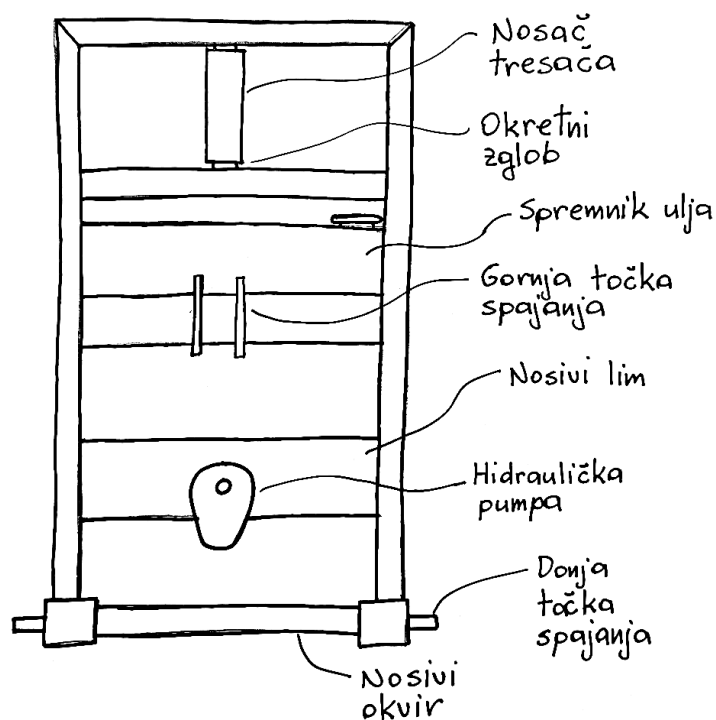 Nosač
tresača
Okretni
zglob
Spremnik ulja
Gornja točka
spajanja
Nosivi lim
Hidraulička
pumpa
Donja
točka
spajanja
Nosivi
okvir